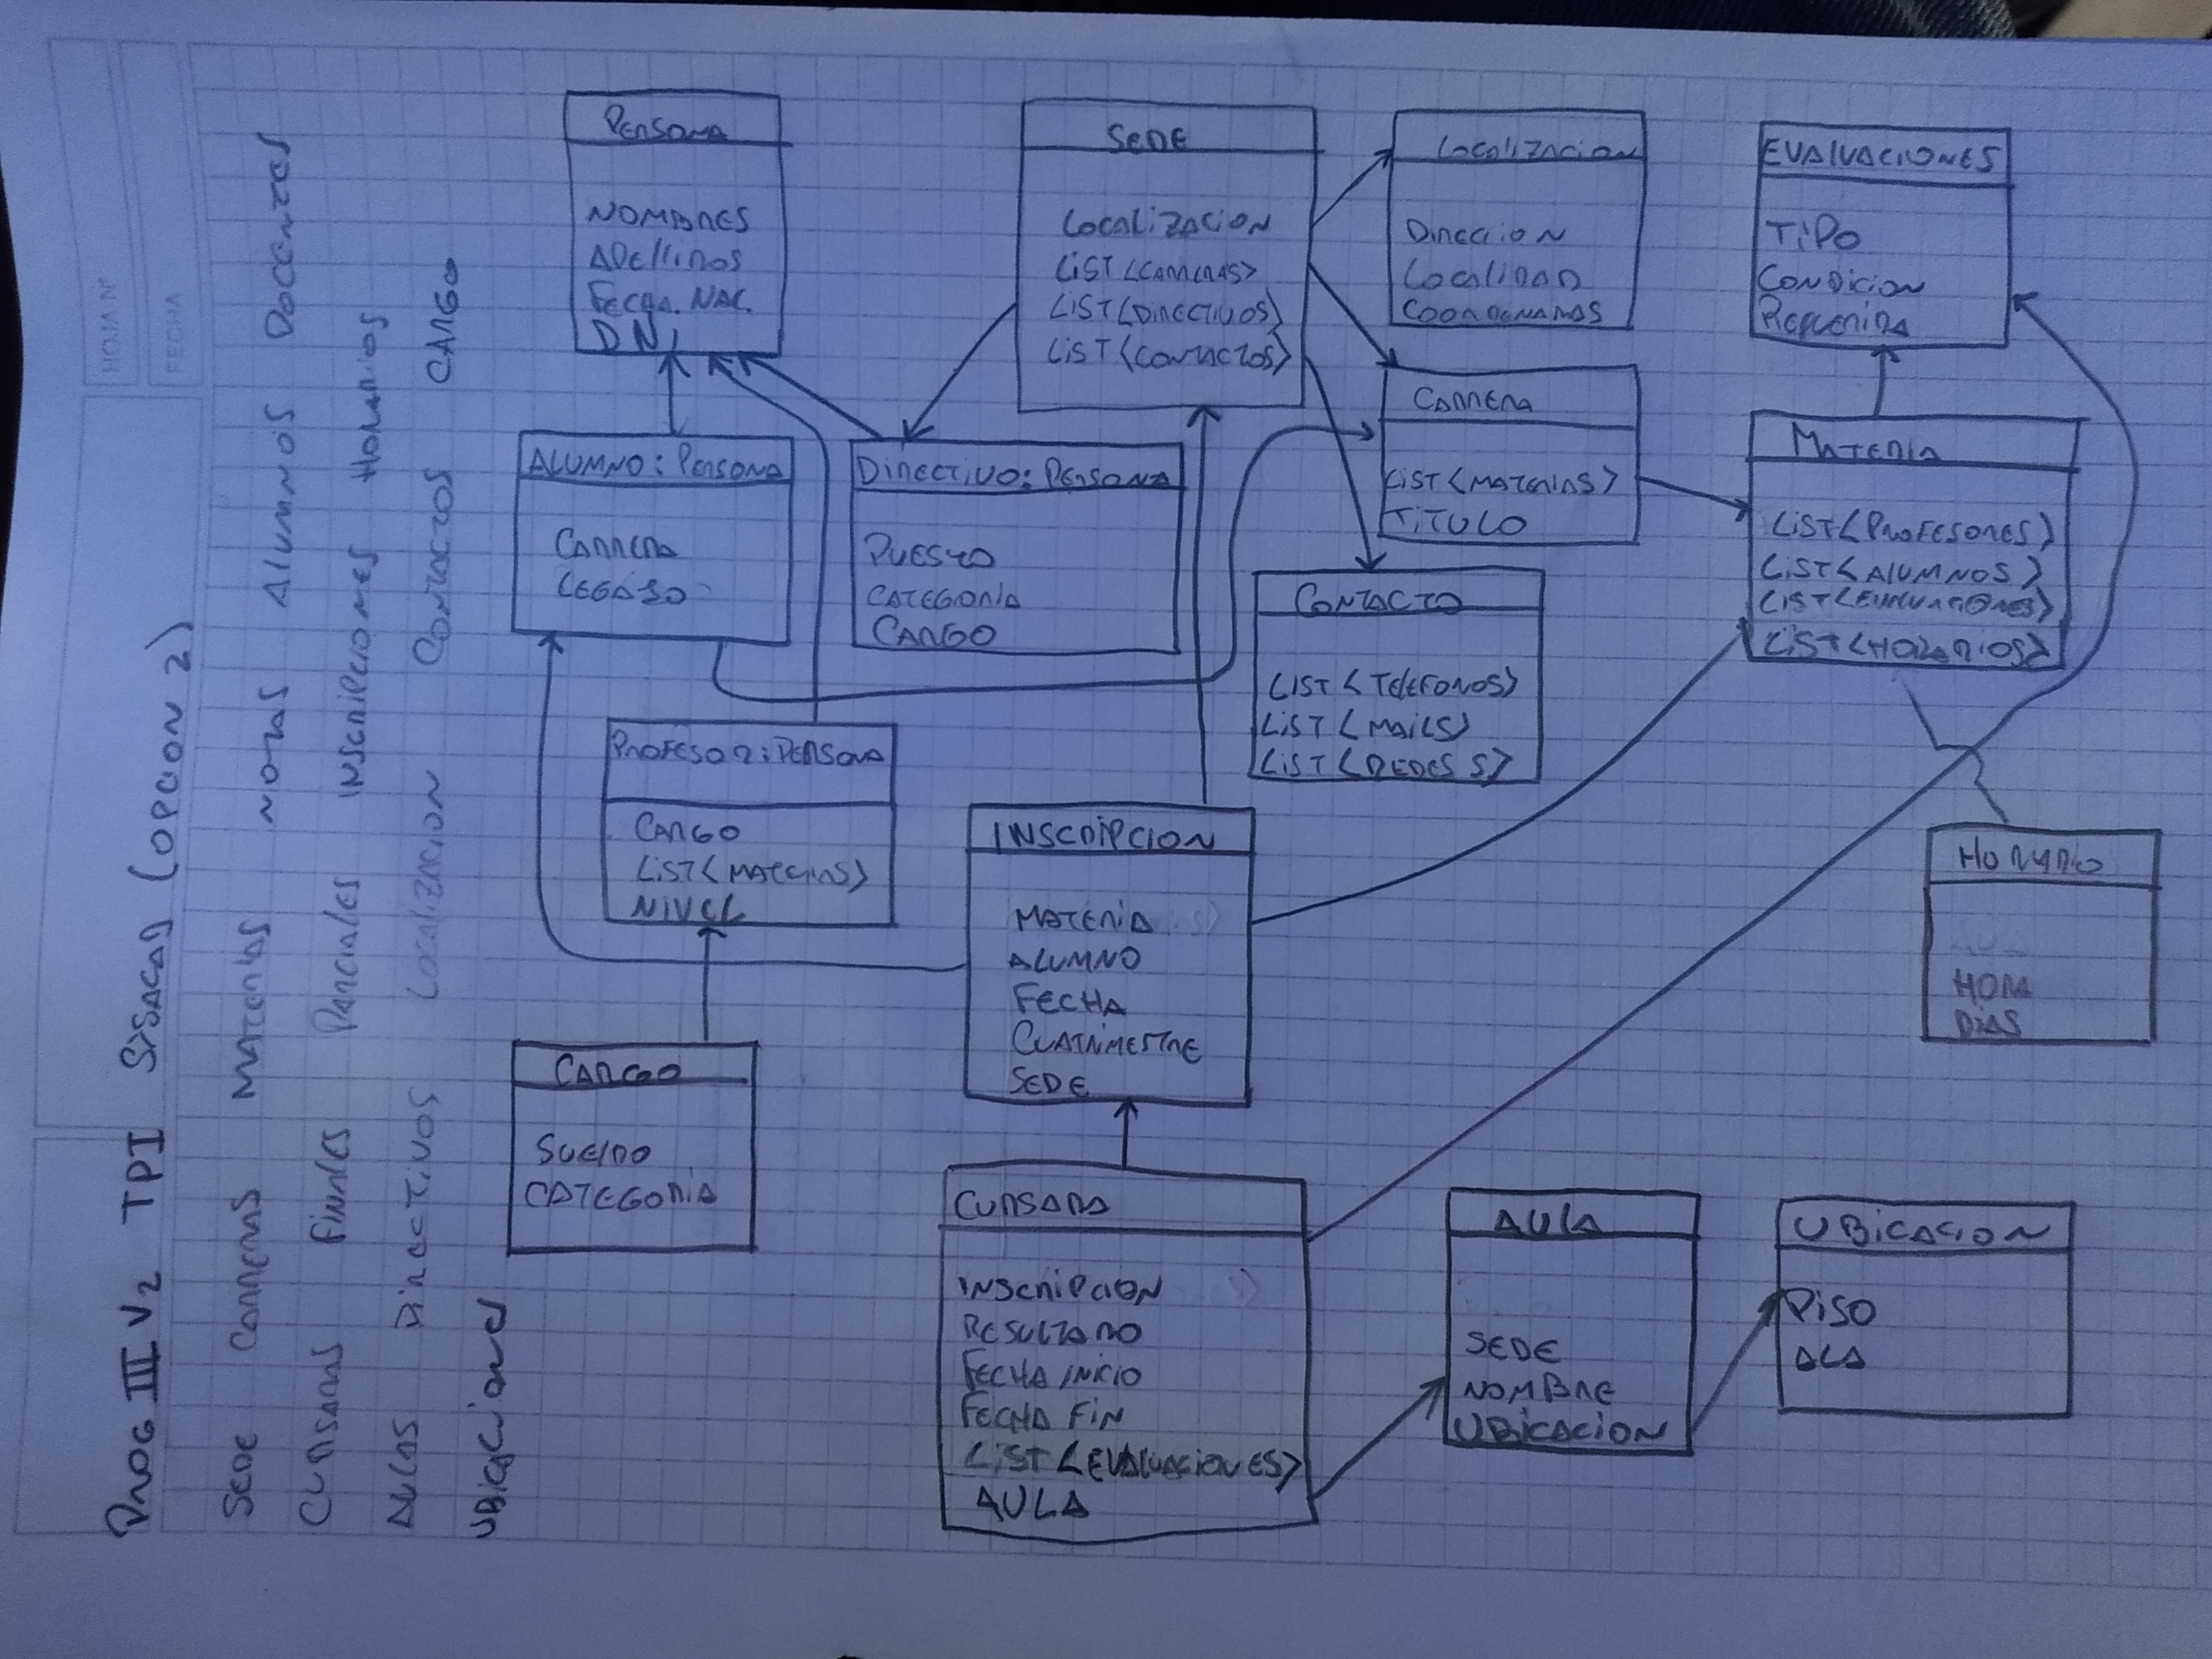 HOJA N°
FECHA
PROG III V2 TPI SISACAD (OPCION 2)
SEDE CARRERAS MATERIAS NOTAS ALUMNOS DOCENTES
CURSADAS FINALES PARCIALES INSCRIPCIONES HORARIOS
AULAS DIRECTIVOS LOCALIZACION CONTACTOS CARGO
UBICACIONES
PERSONA
NOMBRES
APELLIDOS
FECHA. NAC.
DNI
SEDE
LOCALIZACION
LIST <CARRERAS>
LIST <DIRECTIVOS>
LIST <CONTACTOS>
LOCALIZACION
DIRECCION
LOCALIDAD
COORDENADAS
EVALUACIONES
TIPO
CONDICION
REQUERIDA
ALUMNO: PERSONA
CARRERA
LEGAJO
DIRECTIVO: PERSONA
PUESTO
CATEGORIA
CARGO
CARRERA
LIST <MATERIAS>
TITULO
MATERIA
LIST <PROFESORES>
LIST <ALUMNOS>
LIST <EVALUACIONES>
LIST <HORARIOS>
CONTACTO
LIST <TELEFONOS>
LIST <MAILS>
LIST <REDES S>
PROFESOR: PERSONA
CARGO
LIST <MATERIAS>
NIVEL
INSCRIPCION
MATERIA
ALUMNO
FECHA
CUATRIMESTRE
SEDE
HORARIO
HORA
DIAS
CARGO
SUELDO
CATEGORIA
CURSADA
INSCRIPCION
RESULTADO
FECHA INICIO
FECHA FIN
LIST <EVALUACIONES>
AULA
AULA
SEDE
NOMBRE
UBICACION
UBICACION
PISO
ALA